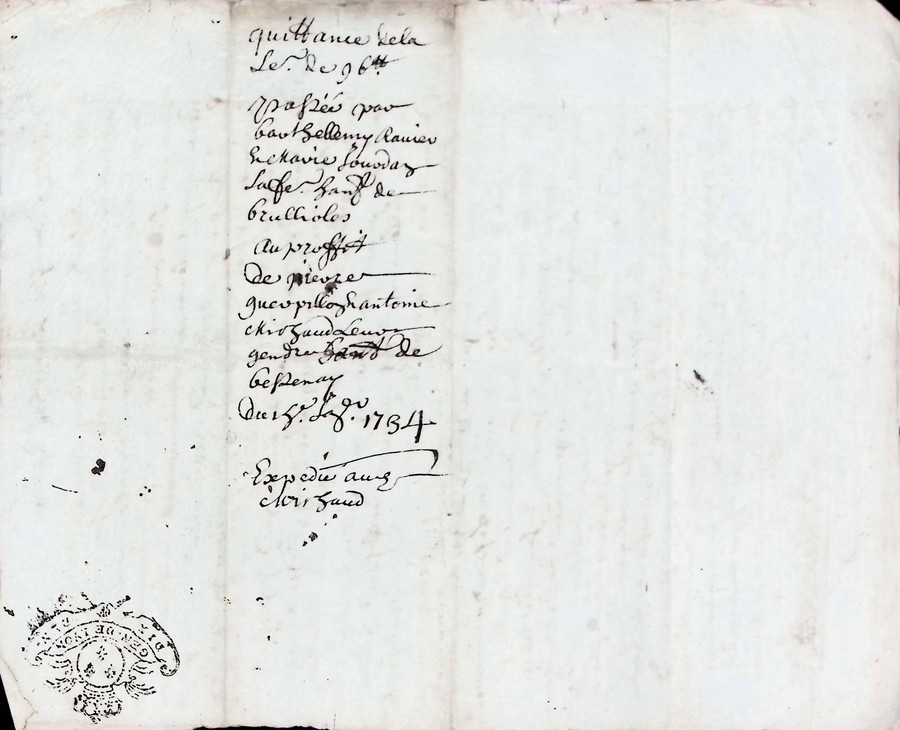 quittance dela
Se.r de 96tt
passée par
barthellemy Ravier
& Marie Jourdan
sa fe. hant de
brullioles
au proffit
de pierre
guerpillon & antoine
Michaud leur
gendre hant de
bessenay
du 1734
Expedié aud
Michaud
GEN. DE LYON